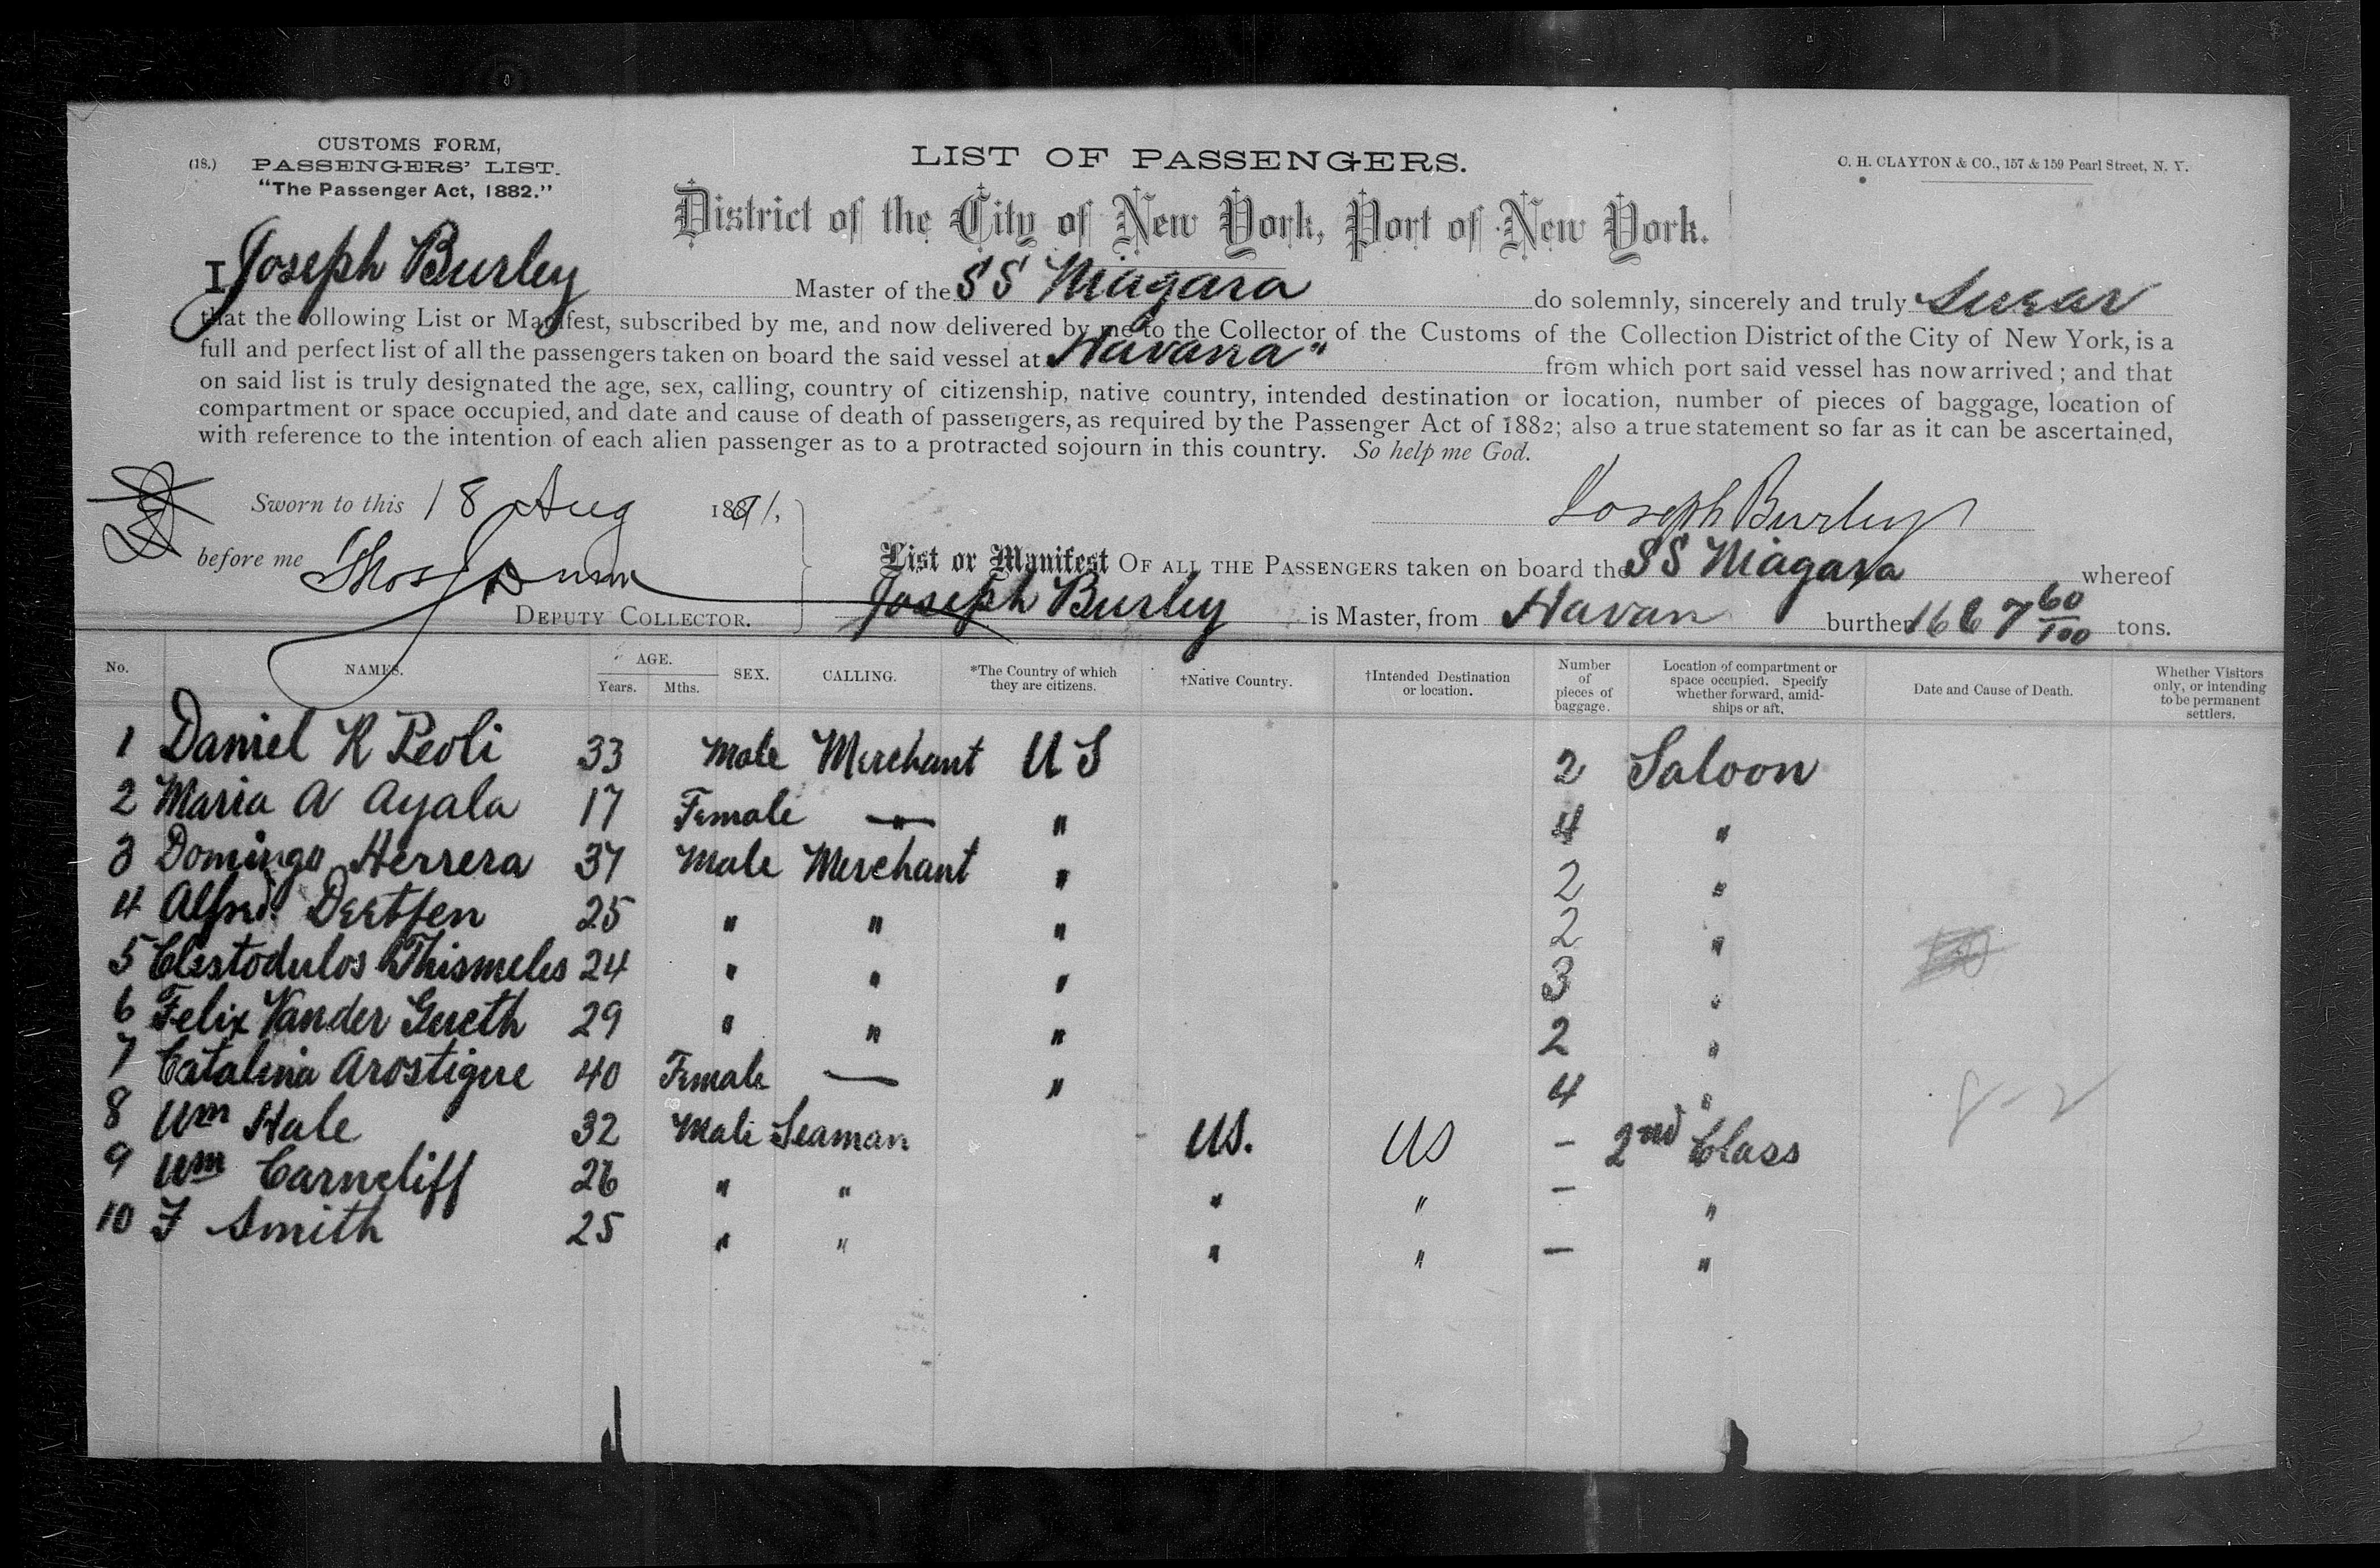 CUSTOMS FORM,
(18.) PASSENGERS' LIST.
"The Passenger Act, 1882."
LIST OF PASSENGERS.
C. H. CLAYTON & CO., 157 & 159 Pearl Street, N. Y.
District of the City of New York, Port of New York.
I Joseph Burley Master of the SS Niagara do solemnly, sincerely and truly Swear
that the following List or Manifest, subscribed by me, and now delivered by me to the Collector of the Customs of the Collection District of the City of New York, is a
full and perfect list of all the passengers taken on board the said vessel at Havana" from which port said vessel has now arrived; and that
on said list is truly designated the age, sex, calling, country of citizenship, native country, intended destination or location, number of pieces of baggage, location of
compartment or space occupied, and date and cause of death of passengers, as required by the Passenger Act of 1882; also a true statement so far as it can be ascertained,
with reference to the intention of each alien passenger as to a protracted sojourn in this country. So help me God.
Sworn to this 18 Aug 1891,
Joseph Burley
before me Thos J Dunn
DEPUTY COLLECTOR.
List or Manifest OF ALL THE PASSENGERS taken on board the SS Niagara whereof
Joseph Burley is Master, from Havan burthen 1667 60/100 tons.
No. NAMES. AGE. Years. Mths. SEX. CALLING. *The Country of which they are citizens. †Native Country. †Intended Destination or location. Number of pieces of baggage. Location of compartment or space occupied. Specify whether forward, amidships or aft. Date and Cause of Death. Whether Visitors only, or intending to be permanent settlers.
1 Daniel R Peoli 33 Male Merchant US 2 Saloon
2 Maria A Ayala 17 Female — " 4 "
3 Domingo Herrera 37 Male Merchant " 2 "
4 Alfred 25 " " " 2 "
5 Clestodulos Thismeles 24 " " " 3 "
6 Felix Vander Gucth 29 " " " 2 "
7 Catalina Arostigue 40 Female — " 4 "
8 Wm Hale 32 Male Seaman US. US — 2nd Class
9 Wm Carncliff 26 " " " " — "
10 F Smith 25 " " " " — "